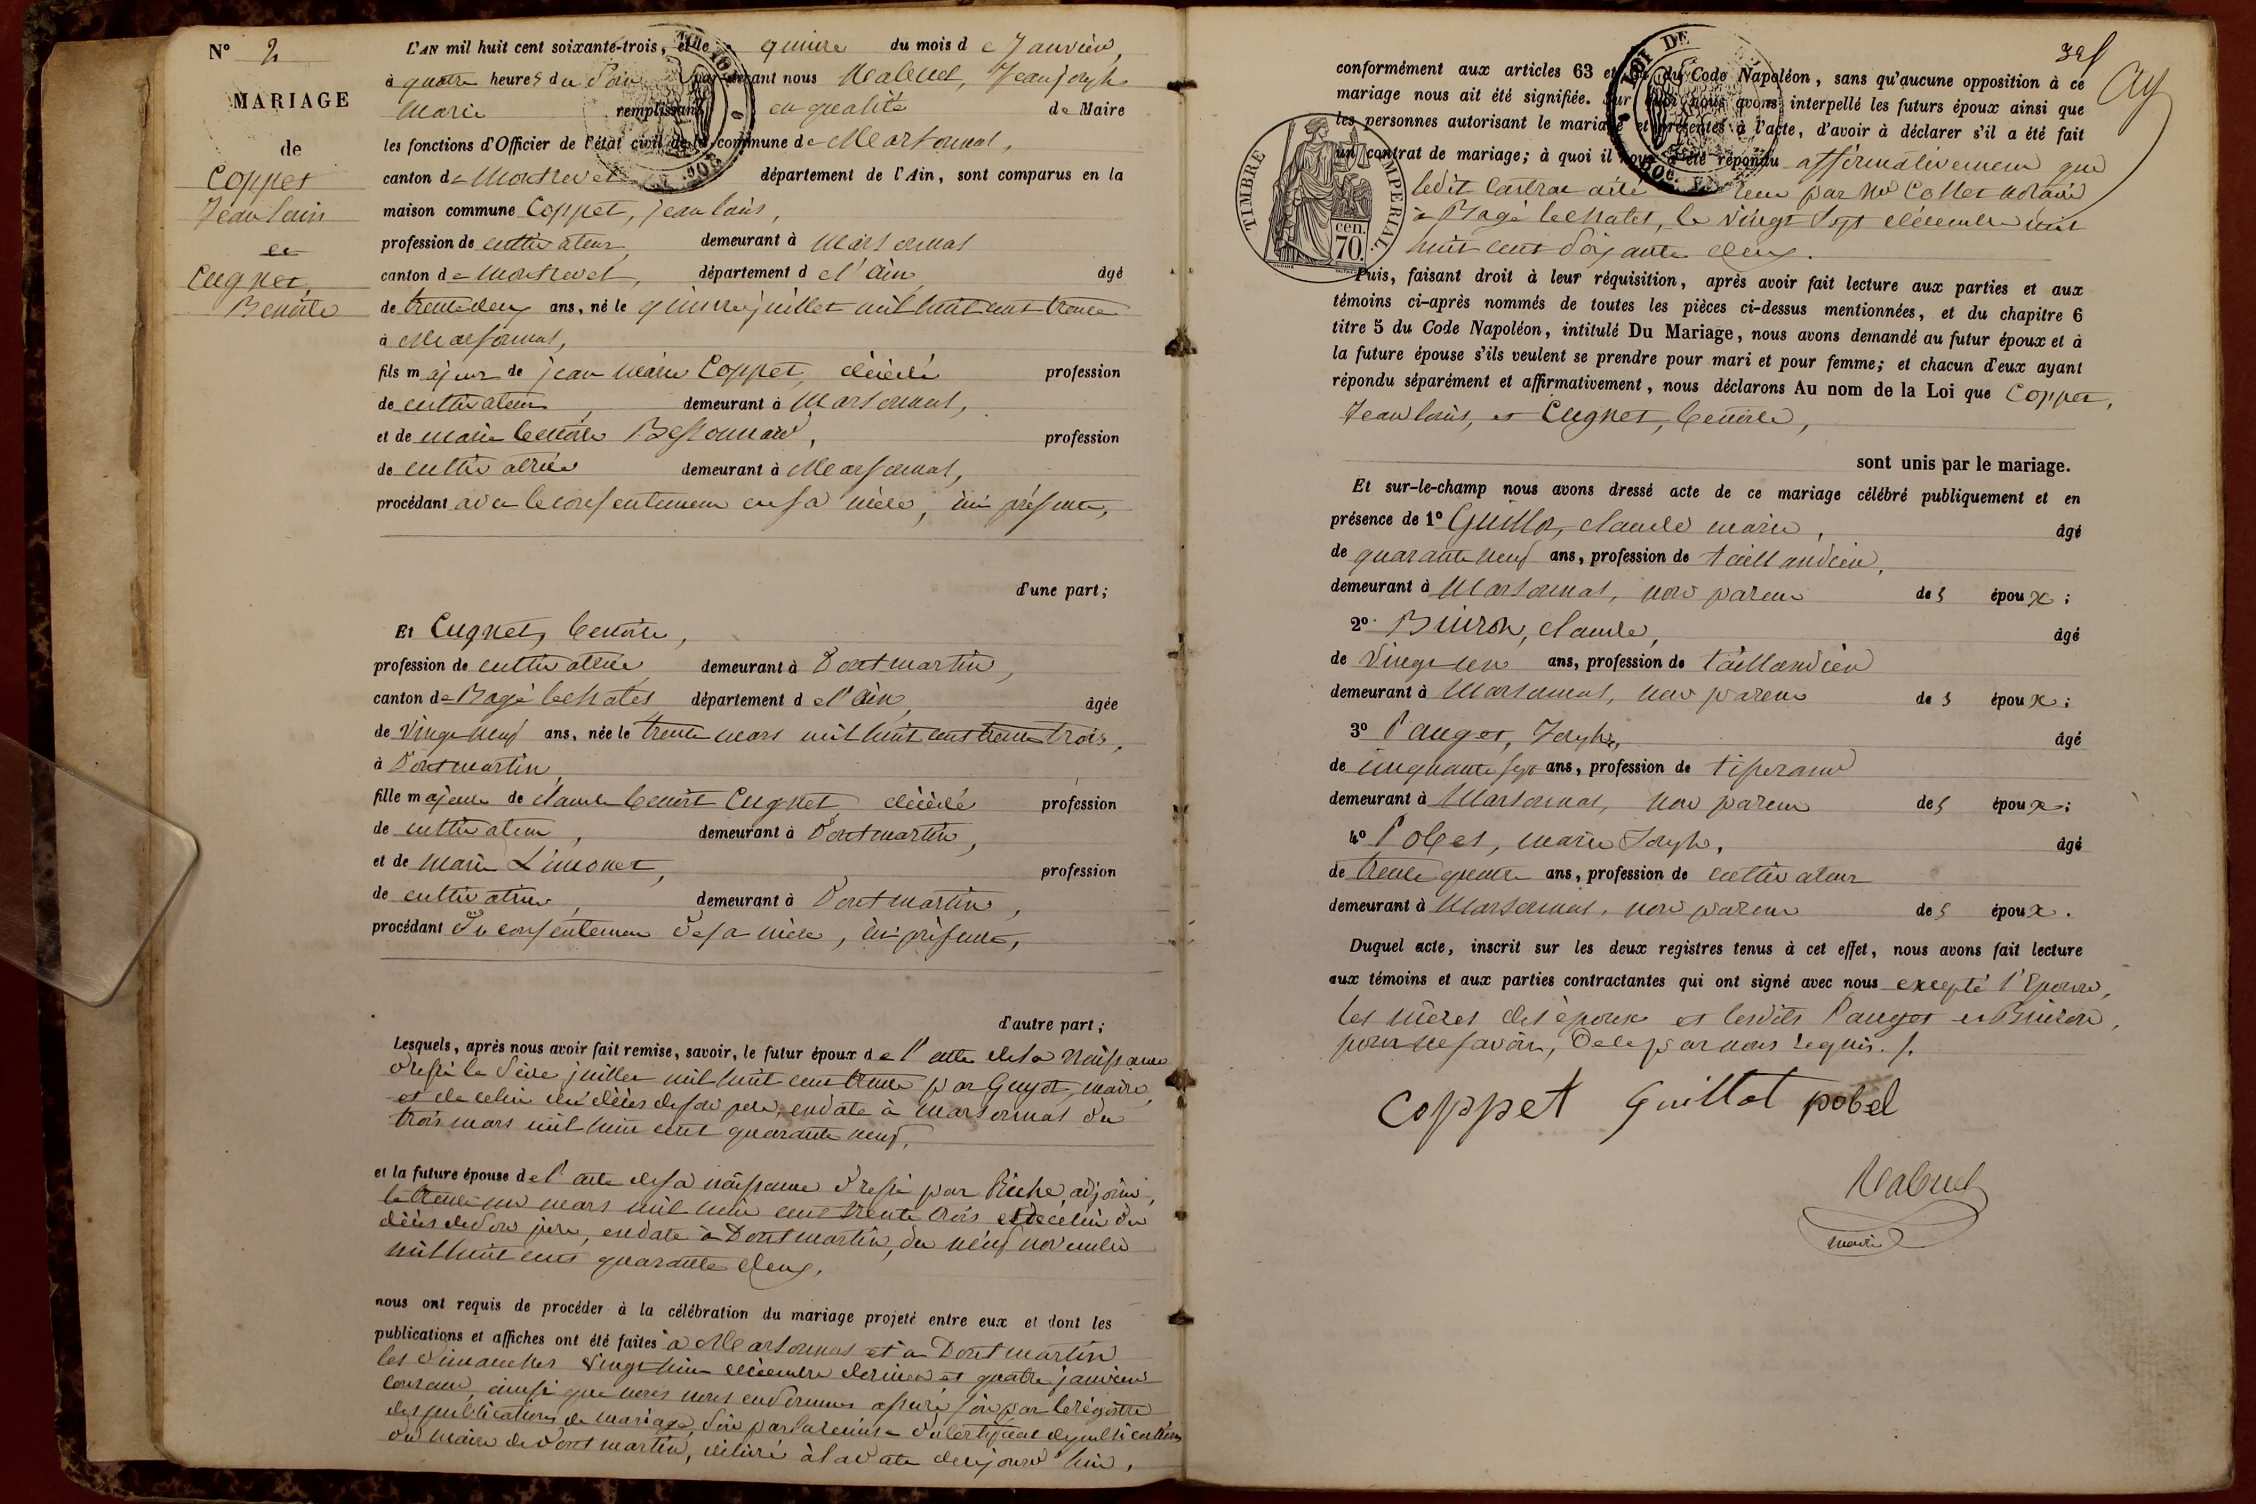 N° 2
MARIAGE
de
Coppet
Jean louis
et
Cugnet,
Benoite
L'AN mil huit cent soixante-trois, et le quinze du mois de Janvier,
à quatre heures du Soir par devant nous Jean joseph
Marie remplissant en qualité de Maire
les fonctions d'Officier de l'état civil de la commune de Marsonnas,
canton de Montrevel département de l'Ain, sont comparus en la
maison commune Coppet, jean louis,
profession de cultivateur, demeurant à Marsonnas
canton de Montrevel, département de l'Ain, âgé
de trente deux ans, né le quinze juillet mil huit cent trente
à Marsonnas,
fils majeur de jean marie Coppet, décédé profession
de cultivateur, demeurant à Marsonnas,
et de marie benoite Bessonnard, profession
de cultivatrice demeurant à Marsonnas,
procédant avec le consentement de sa mère, ici présente,
d'une part;
Et Cugnet, benoite,
profession de cultivatrice demeurant à Dontmartin,
canton de Bagé le chatel département de l'Ain, âgée
de Vingt neuf ans, née le trente mars mil huit cent trente trois,
à Dontmartin,
fille majeure de claude benoit Cugnet, décédé profession
de cultivateur, demeurant à Dontmartin,
et de marie Limonet, profession
de cultivatrice, demeurant à Dontmartin,
procédant du consentement de sa mère, ici présente,
d'autre part;
Lesquels, après nous avoir fait remise, savoir, le futur époux de l'acte de sa naissance
dressé le Seize juillet mil huit cent trente par Guyot, maire,
et de celui du décès de son père, en date à Marsonnas du
trois mars mil huit cent quarante neuf,
et la future épouse de l'acte de sa naissance dressé par Riche, adjoint,
le trente un mars mil huit cent trente trois et de celui du
décès de son père, en date à Dontmartin, du neuf novembre
mil huit cent quarante deux,
nous ont requis de procéder à la célébration du mariage projeté entre eux et dont les
publications et affiches ont été faites à Marsonnas et à Dontmartin
les dimanches Vingt huit décembre dernier et quatre janvier
courant, ainsi que nous nous en sommes assuré, soit par le registre
des publications de mariage, soit par la remise du certificat de publication
du maire de Dontmartin, délivré à la date de ce jourd'hui,
conformément aux articles 63 et du Code Napoléon, sans qu'aucune opposition à ce
mariage nous ait été signifiée. Sur quoi nous avons interpellé les futurs époux ainsi que
les personnes autorisant le mariage et présentes à l'acte, d'avoir à déclarer s'il a été fait
un contrat de mariage; à quoi il nous a été répondu affirmativement que
ledit Contrat a été reçu par Me Collet notaire
à Bagé le chatel, le vingt Sept décembre mil
huit cent Soixante deux.
TIMBRE IMPERIAL
70 cen.
Puis, faisant droit à leur réquisition, après avoir fait lecture aux parties et aux
témoins ci-après nommés de toutes les pièces ci-dessus mentionnées, et du chapitre 6
titre 5 du Code Napoléon, intitulé Du Mariage, nous avons demandé au futur époux et à
la future épouse s'ils veulent se prendre pour mari et pour femme; et chacun d'eux ayant
répondu séparément et affirmativement, nous déclarons Au nom de la Loi que Coppet,
Jean louis, et Cugnet, benoite,
sont unis par le mariage.
Et sur-le-champ nous avons dressé acte de ce mariage célébré publiquement et en
présence de 1° Guillot, claude marie, âgé
de quarante neuf ans, profession de taillandier,
demeurant à Marsonnas, non parent des époux;
2° Buiron, claude, âgé
de Vingt un ans, profession de taillandier
demeurant à Marsonnas, non parent des époux;
3° Pauget, Joseph, âgé
de cinquante sept ans, profession de tisserand
demeurant à Marsonnas, non parent des époux;
4° Pobel, marie Joseph, âgé
de trente quatre ans, profession de cultivateur
demeurant à Marsonnas, non parent des époux.
Duquel acte, inscrit sur les deux registres tenus à cet effet, nous avons fait lecture
aux témoins et aux parties contractantes qui ont signé avec nous excepté l'Epouse,
les mères des époux et lesdits Pauget et Buiron,
pour ne savoir, de ce par nous requis./.
Coppet Guillot pobel
maire